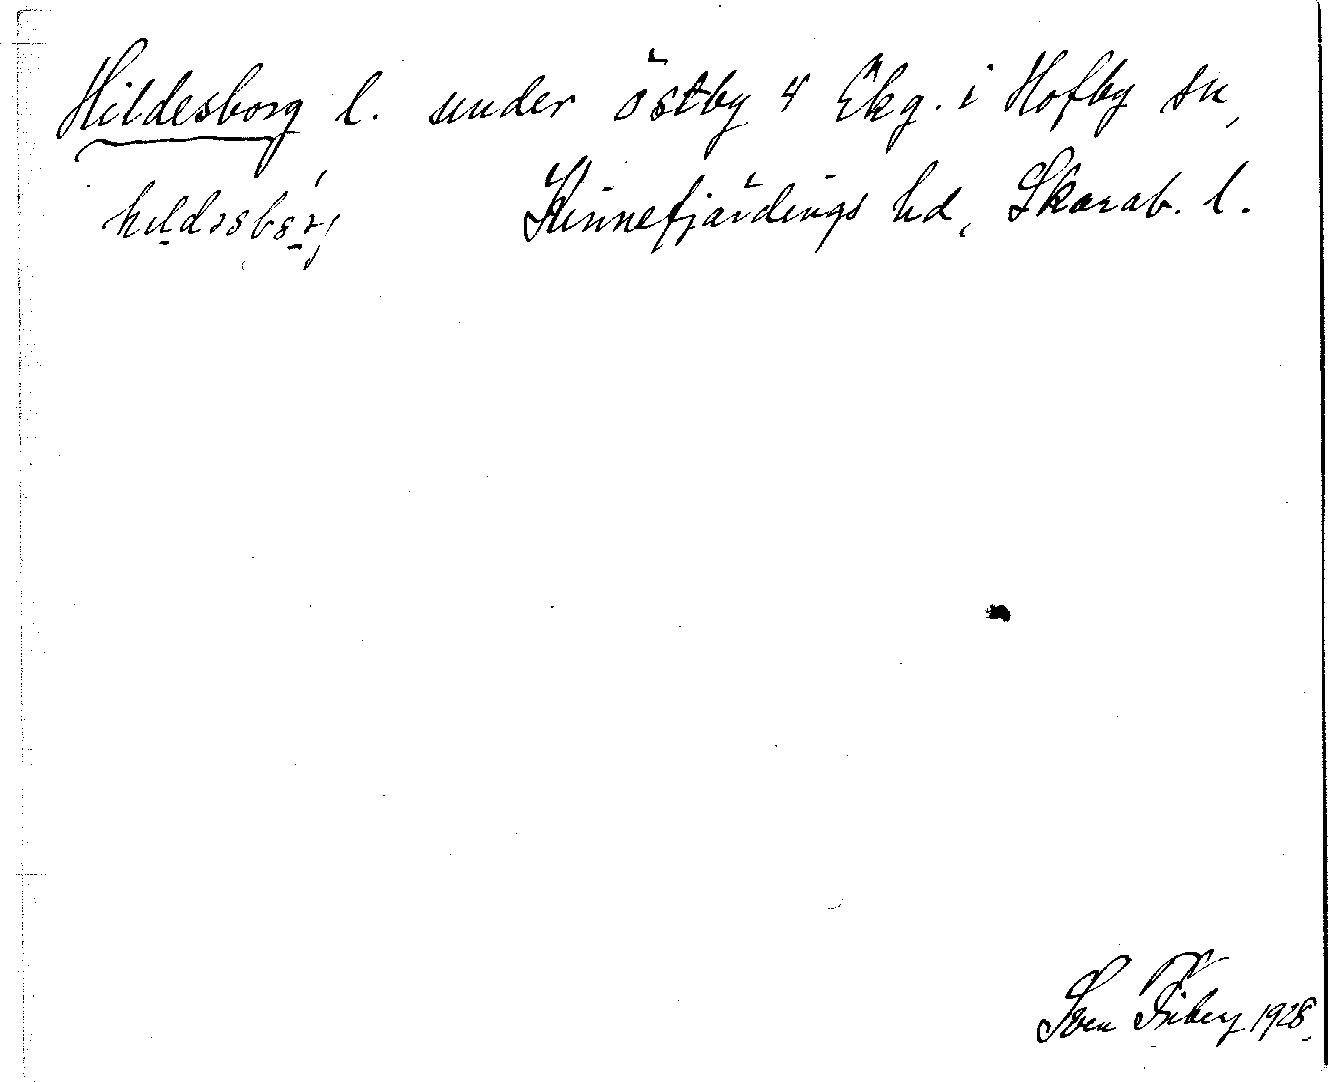 Hildesborg l. under Östby 4 Ekg. i Hofby sn,
hildəsbórj Kinnefjärdings hd, Skarab. l.
Sven Friberg 1928.